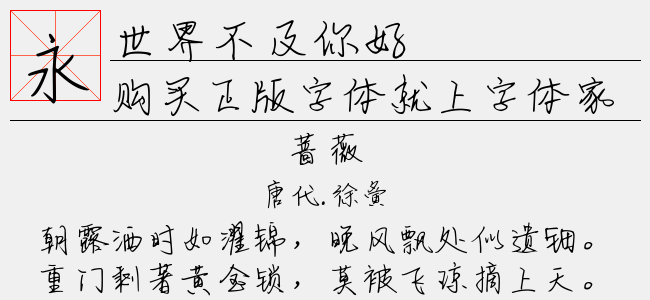 永
世界不及你好
购买正版字体就上字体家
蔷薇
唐代.徐夤
朝露洒时如濯锦，晚风飘处似遗钿。
重门剩著黄金锁，莫被飞琼摘上天。